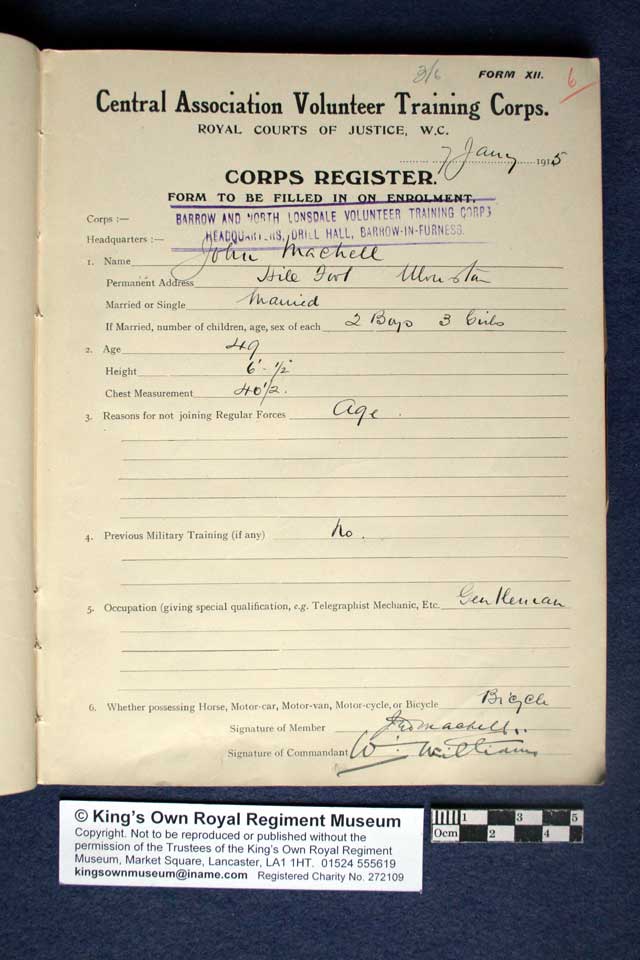 3/6 FORM XII. 6
Central Association Volunteer Training Corps.
ROYAL COURTS OF JUSTICE, W.C.
7 Jany 1915
CORPS REGISTER.
FORM TO BE FILLED IN ON ENROLMENT.
Corps :— BARROW AND NORTH LONSDALE VOLUNTEER TRAINING CORPS
Headquarters :— HEADQUARTERS, DRILL HALL, BARROW-IN-FURNESS.
1. Name John Machell
Permanent Address Ulverston
Married or Single Married
If Married, number of children, age, sex of each 2 Boys 3 Girls
2. Age 49
Height 6'-½"
Chest Measurement 40½.
3. Reasons for not joining Regular Forces Age.
4. Previous Military Training (if any) No.
5. Occupation (giving special qualification, e.g. Telegraphist Mechanic, Etc. Gentleman
6. Whether possessing Horse, Motor-car, Motor-van, Motor-cycle, or Bicycle Bicycle
Signature of Member Jno Machell.
Signature of Commandant W. Williams
© King's Own Royal Regiment Museum
Copyright. Not to be reproduced or published without the
permission of the Trustees of the King's Own Royal Regiment
Museum, Market Square, Lancaster, LA1 1HT. 01524 555619
kingsownmuseum@iname.com Registered Charity No. 272109
1 3 5
0cm 2 4